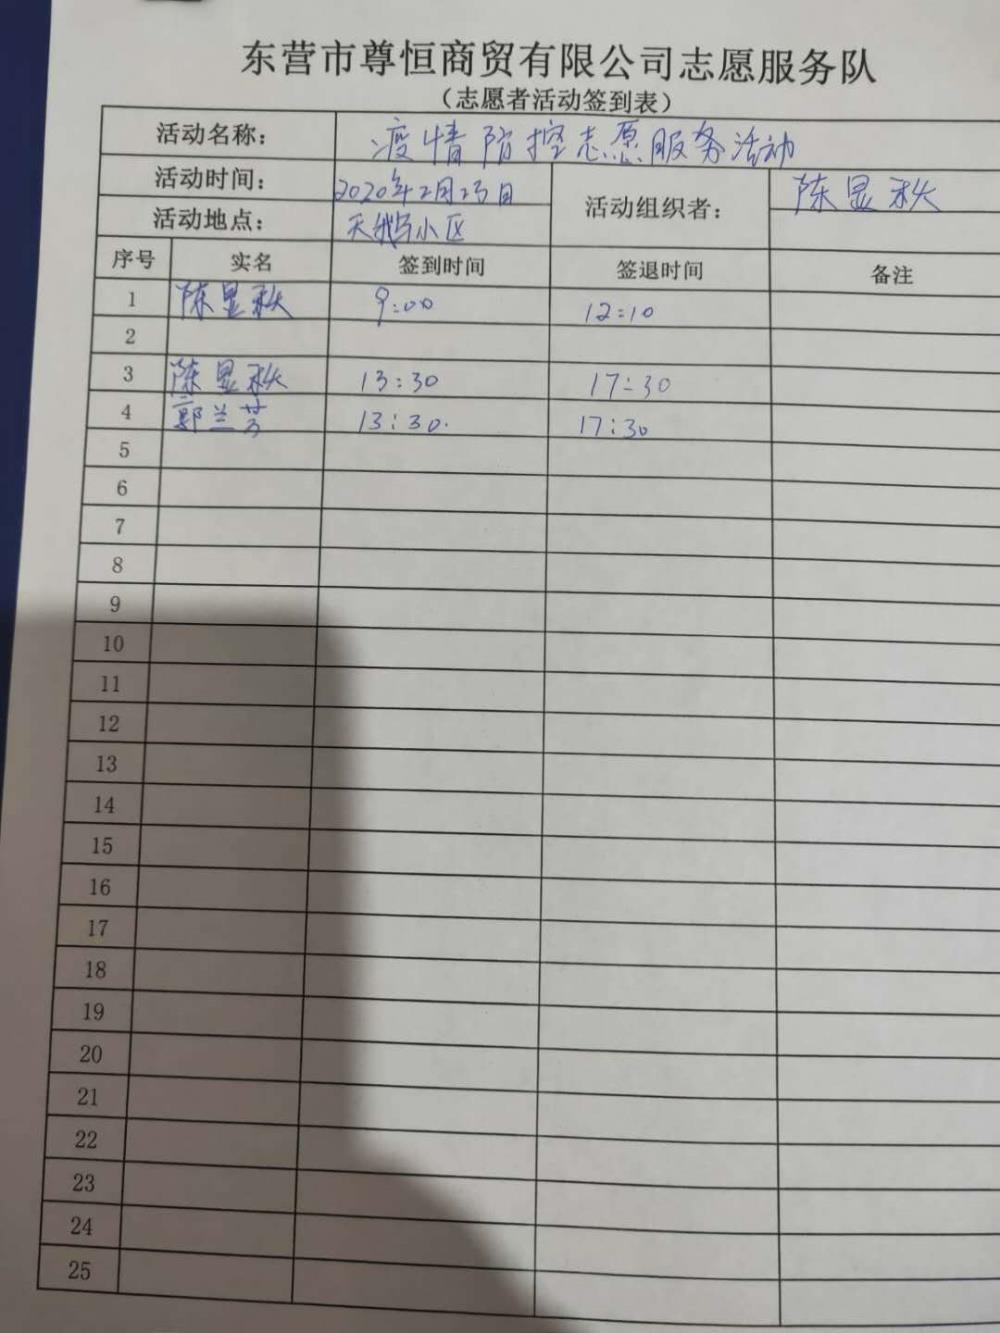 东营市尊恒商贸有限公司志愿服务队
（志愿者活动签到表）
活动名称： 疫情防控志愿服务活动
活动时间： 2020年2月23日 活动组织者： 陈显秋
活动地点： 天鹅小区
序号 实名 签到时间 签退时间 备注
1 陈显秋 9:00 12:10
2
3 陈显秋 13:30 17:30
4 郭兰芳 13:30 17:30
5
6
7
8
9
10
11
12
13
14
15
16
17
18
19
20
21
22
23
24
25